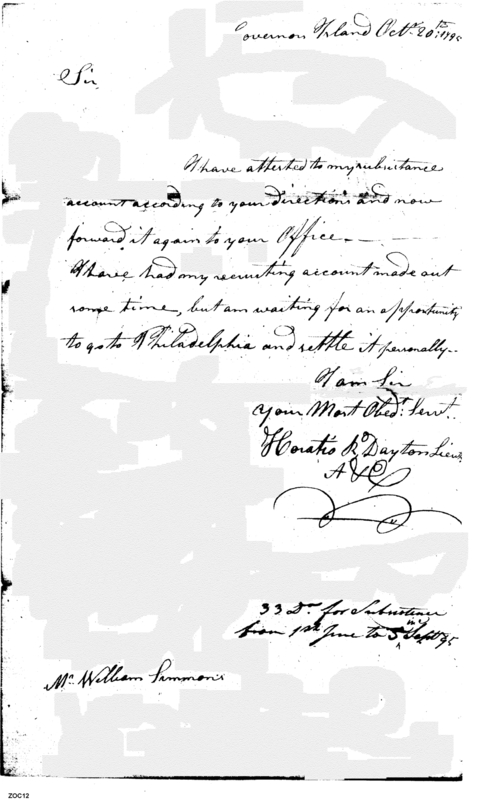 Governors Island Octr. 20th. 1795
Sir
I have attested to my subsistance
account according to your directions and now
forward it again to your Office—
I have had my recruiting account made out
some time, but am waiting for an opportunity
to go to Philadelphia and settle it personally—
I am Sir
Your Most Obedt. Servt.
Horatio R Dayton Lieut
A &
33 Drs for Subsistence
from 1st June to 5 Septr 95
Mr. William Simmons
ZOC12